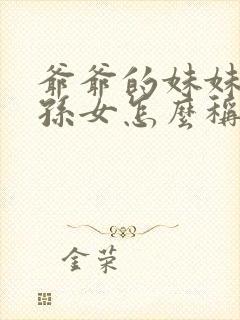 爺爺的妹妹
孫女怎麼稱
金荣